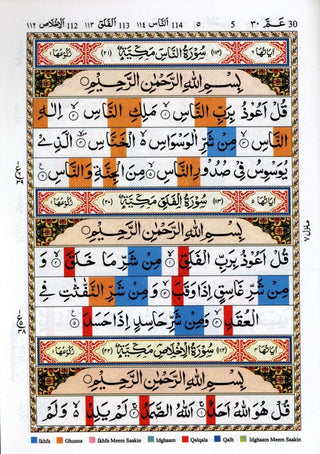 ١١٢ الْاِخْلَاص 112 ١١٣ الْفَلَق 113 ١١٤ النَّاس 114 ٥ 5 ٣٠ عَمَّ 30
سُوْرَةُ النَّاسِ مَكِّيَّةٌ
بِسْمِ اللّٰهِ الرَّحْمٰنِ الرَّحِيْمِ
قُلْ اَعُوْذُ بِرَبِّ النَّاسِ ۙ مَلِكِ النَّاسِ ۙ اِلٰهِ
النَّاسِ ۙ مِنْ شَرِّ الْوَسْوَاسِ ۙ الْخَنَّاسِ ۙ الَّذِيْ
يُوَسْوِسُ فِيْ صُدُوْرِ النَّاسِ ۙ مِنَ الْجِنَّةِ وَالنَّاسِ
سُوْرَةُ الْفَلَقِ مَكِّيَّةٌ
بِسْمِ اللّٰهِ الرَّحْمٰنِ الرَّحِيْمِ
قُلْ اَعُوْذُ بِرَبِّ الْفَلَقِ ۙ مِنْ شَرِّ مَا خَلَقَ ۙ وَ
مِنْ شَرِّ غَاسِقٍ اِذَا وَقَبَ ۙ وَ مِنْ شَرِّ النَّفّٰثٰتِ فِي
الْعُقَدِ ۙ وَمِنْ شَرِّ حَاسِدٍ اِذَا حَسَدَ
سُوْرَةُ الْاِخْلَاصِ مَكِّيَّةٌ
بِسْمِ اللّٰهِ الرَّحْمٰنِ الرَّحِيْمِ
قُلْ هُوَ اللّٰهُ اَحَدٌ ۚ اَللّٰهُ الصَّمَدُ ۚ لَمْ يَلِدْ ۙ وَ لَمْ
Ikhfa Ghunna Ikhfa Meem Saakin Idghaam Qalqala Qalb Idghaam Meem Saakin